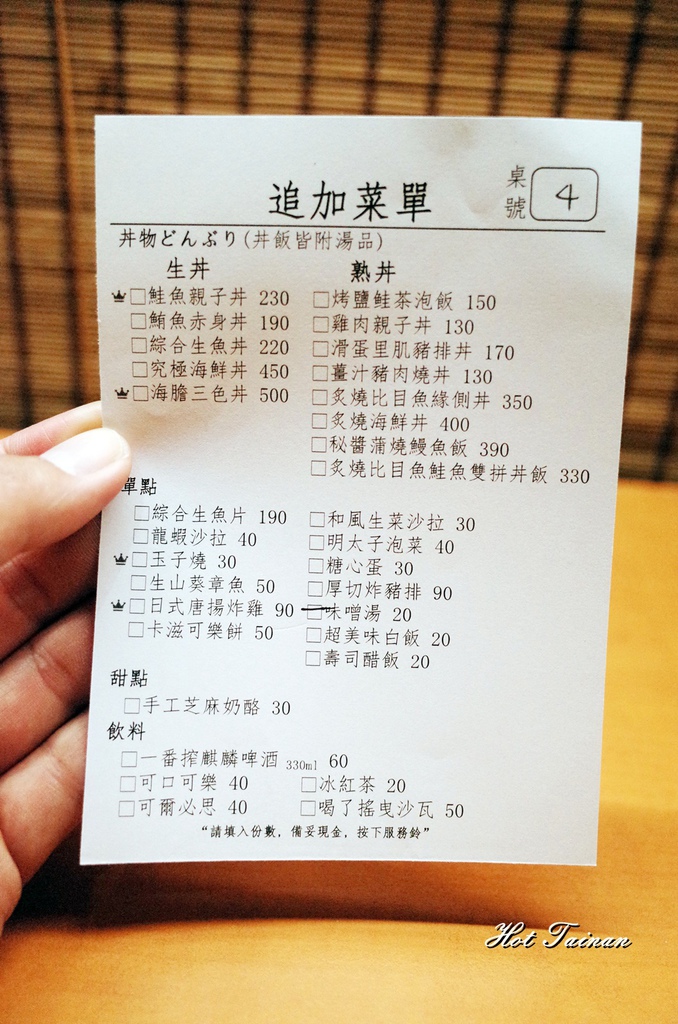 追加菜單
桌號 4
丼物どんぶり(丼飯皆附湯品)
生丼
□鮭魚親子丼 230
□鮪魚赤身丼 190
□綜合生魚丼 220
□究極海鮮丼 450
□海膽三色丼 500
熟丼
□烤鹽鮭茶泡飯 150
□雞肉親子丼 130
□滑蛋里肌豬排丼 170
□薑汁豬肉燒丼 130
□炙燒比目魚緣側丼 350
□炙燒海鮮丼 400
□秘醬蒲燒鰻魚飯 390
□炙燒比目魚鮭魚雙拼丼飯 330
單點
□綜合生魚片 190
□龍蝦沙拉 40
□玉子燒 30
□生山葵章魚 50
□日式唐揚炸雞 90
□卡滋可樂餅 50
□和風生菜沙拉 30
□明太子泡菜 40
□糖心蛋 30
□厚切炸豬排 90
□味噌湯 20
□超美味白飯 20
□壽司醋飯 20
甜點
□手工芝麻奶酪 30
飲料
□一番搾麒麟啤酒 330ml 60
□可口可樂 40
□可爾必思 40
□冰紅茶 20
□喝了搖曳沙瓦 50
“請填入份數, 備妥現金, 按下服務鈴”
Hot Tainan